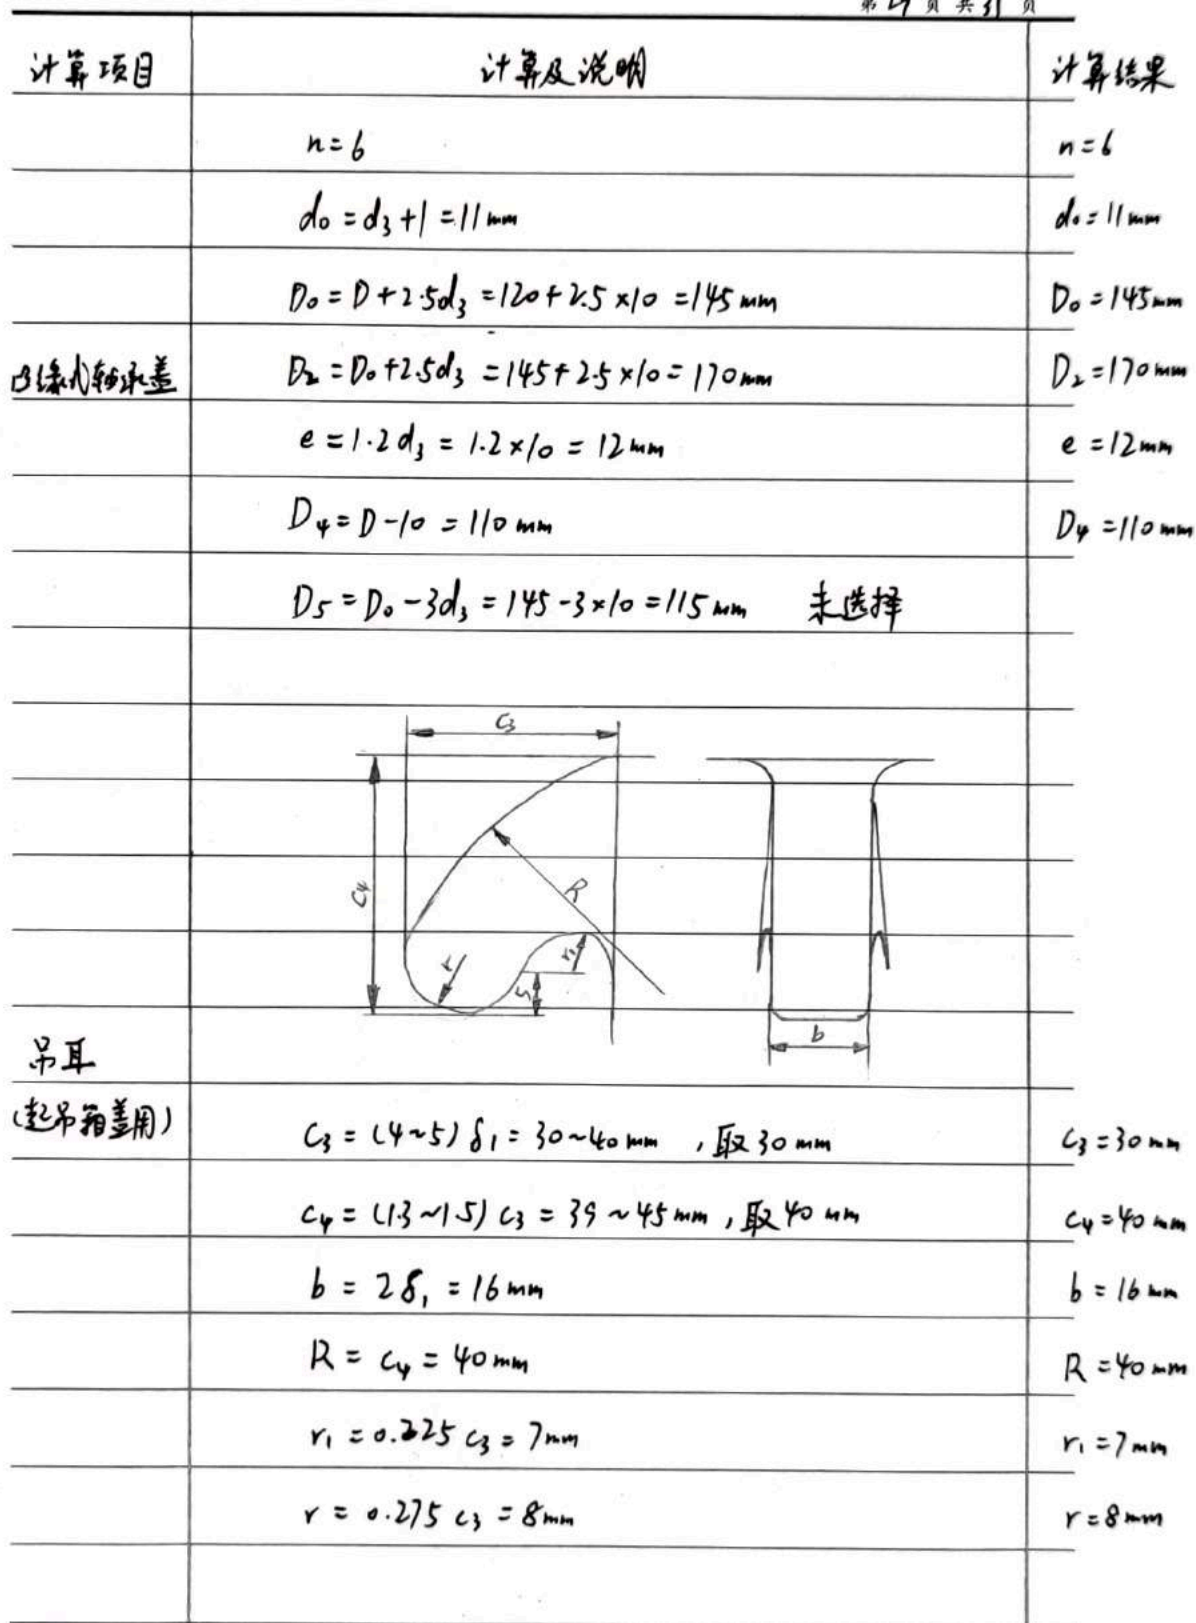 第 页 共 31 页
计算项目 计算及说明 计算结果
n=6 n=6
d₀=d₃+1=11mm d₀=11mm
D₀=D+2.5d₃=120+2.5×10=145mm D₀=145mm
凸缘式轴承盖 D₂=D₀+2.5d₃=145+2.5×10=170mm D₂=170mm
e=1.2d₃=1.2×10=12mm e=12mm
D₄=D-10=110mm D₄=110mm
D₅=D₀-3d₃=145-3×10=115mm 未选择
C₃
C₄ R
r r₁
S
b
吊耳
(起吊箱盖用)
C₃=(4~5)δ₁=30~40mm,取30mm C₃=30mm
C₄=(1.3~1.5)C₃=39~45mm,取40mm C₄=40mm
b=2δ₁=16mm b=16mm
R=C₄=40mm R=40mm
r₁=0.225C₃=7mm r₁=7mm
r=0.275C₃=8mm r=8mm